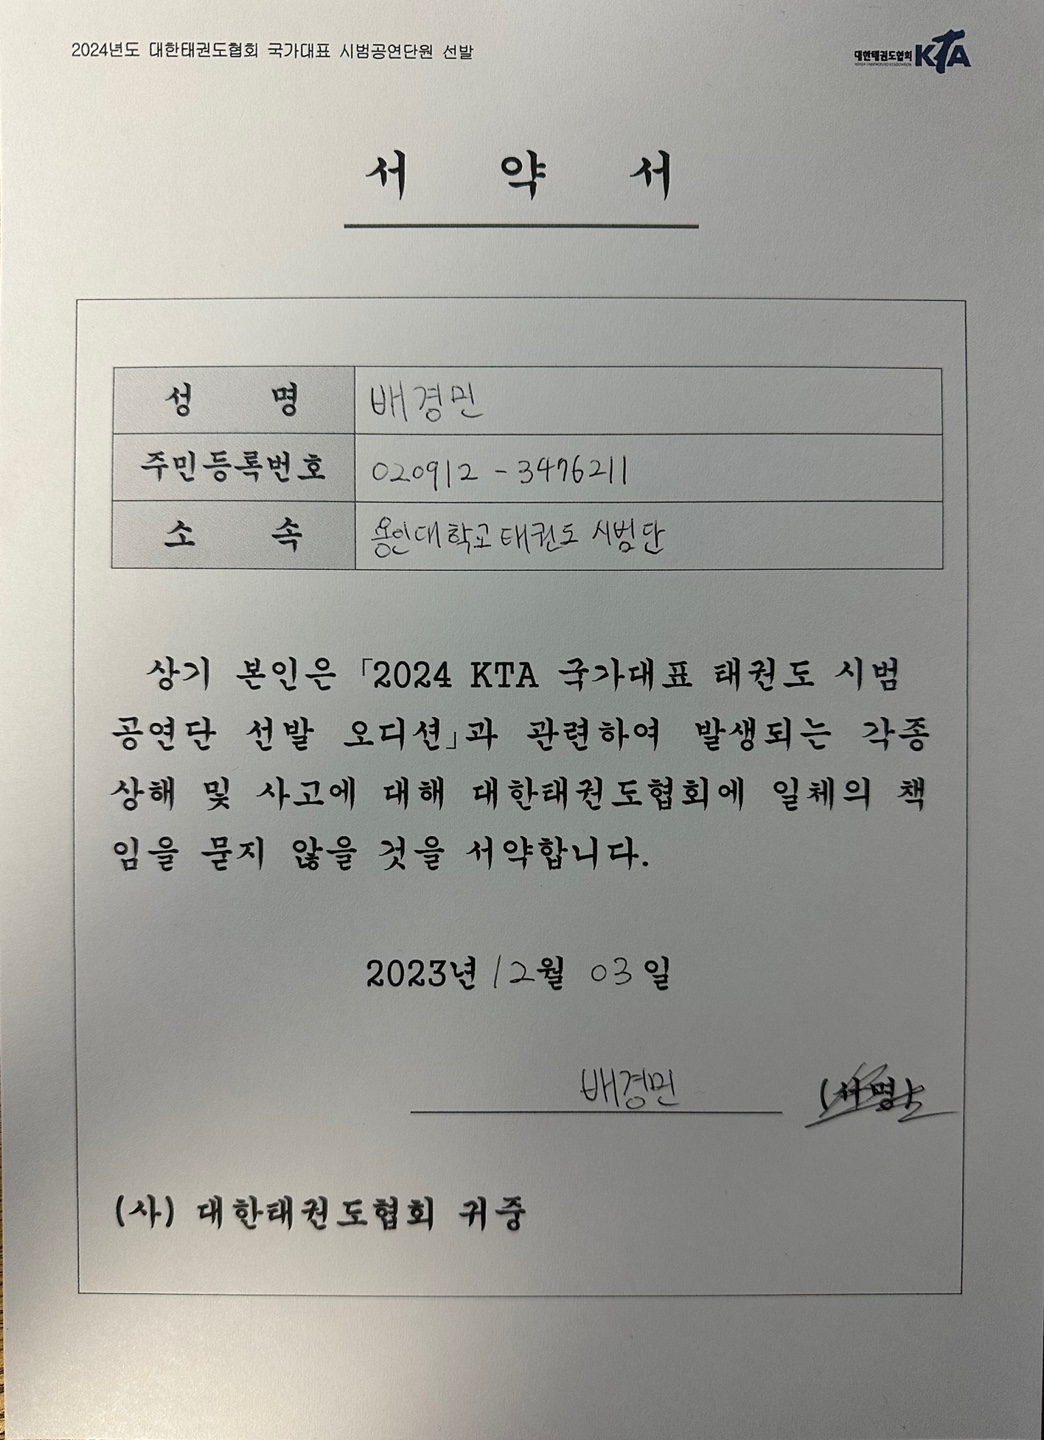 2024년도 대한태권도협회 국가대표 시범공연단원 선발
대한태권도협회 KTA
서 약 서
성 명 배경민
주민등록번호 020912 - 3476211
소 속 용인대학교 태권도 시범단
상기 본인은 「2024 KTA 국가대표 태권도 시범
공연단 선발 오디션」과 관련하여 발생되는 각종
상해 및 사고에 대해 대한태권도협회에 일체의 책
임을 묻지 않을 것을 서약합니다.
2023년 12월 03일
배경민 (서명)
(사) 대한태권도협회 귀중